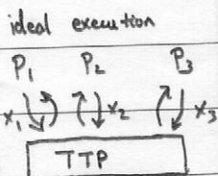 ideal execution
P₁ P₂ P₃
x₁ x₂ x₃
TTP